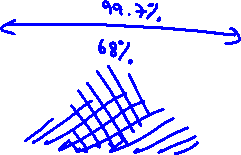 99.7%
68%